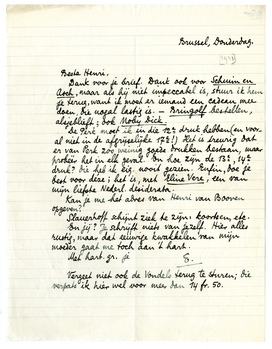 Brussel, Donderdag.
[1931]
Beste Henri,
Dank voor je brief. Dank ook voor Schuim en
Asch, maar als hij niet impeccabel is, stuur ik hem
je terug, want ik moet er iemand een cadeau mee
doen, die nogal lastig is. — Bringolf bestellen,
alsjeblieft; ook Moby Dick.
de Perk moet ik in die 12e druk hebben (en voor-
al niet in de afgrijselijke 17e!) Het is treurig dat
er van Perk zoo weinig goede drukken bestaan, maar
probeer het in elk geval. En hoe zijn de 13e, 14e
druk? die heb ik eig. nooit gezien. Enfin, doe je
best voor deze; het is, met Eline Vere, een van
mijn liefste Nederl. desiderata.
Kan je me het adres van Henri van Booven
opgeven?
Slauerhoff schijnt ziek te zijn: koortsen, etc.
En jij? Je schrijft niet van jezelf. Hier alles
rustig, maar dat eeuwige kwakkelen van mijn
moeder gaat me toch aan 't hart.
Met hart. gr. je
E.
Vergeet niet ook de Vondels terug te sturen; die
verpats ik hier wel voor meer dan 14 fr. 50.